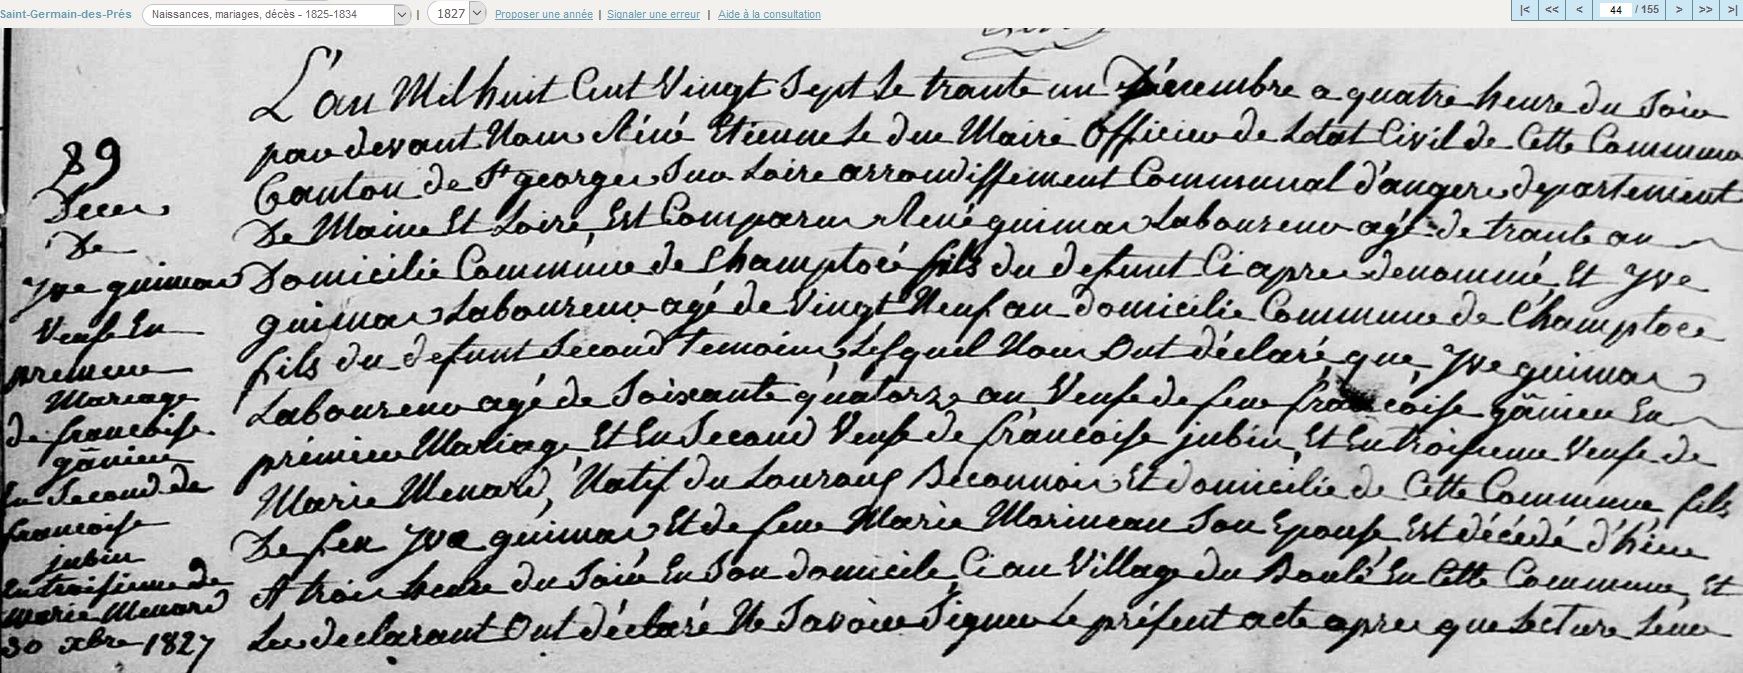 Saint-Germain-des-Près Naissances, mariages, décès - 1825-1834 | 1827 Proposer une année | Signaler une erreur | Aide à la consultation |< << < 44 / 155 > >> >|
L'an Mil huit Cent Vingt Sept le trante un Décembre a quatre heure du Soir
par devant Nous Réné Etienne Le duc Maire Officier de Letat Civil de Cette Commune
Canton de St george Sur Loire arrondissement Communal d'angers departement
De Maine Et Loire, Est Comparu René guimas Laboureur agé de trante an
Domicilié Commune de Champtocé fils du defunt Ci apres denommé, Et Yve
guimas Laboureur agé de Vingt Neuf an domicilié Commune de Champtocé
fils du defunt Second temoins, Lesquel Nous Ont déclaré que Yve guimas
Laboureur agé de Soixante quatorze an Veufe de feue francoise gânier En
prémier Mariage, Et En Second Veufe de francoise jubin, Et En troisieme Veufe de
Marie Menard, Natif du Louroux Beconnois Et domicilié de Cette Commune fils
De feu Yve guimas Et de feue Marie Morineau Son Epouse Est décédé d'hier
A trois heure du Soir En Son domicile Ci au Village du Boulé En Cette Commune, Et
Les declarant Ont déclaré Ne Savoir Signer Le présent acte apres que Lecture Leur
89
Deces
De
Yve guimas
Veufe En
premier
Mariage
de francoise
gânier
En Second de
francoise
jubin
En troisieme de
Marie Menard
30 xbre 1827